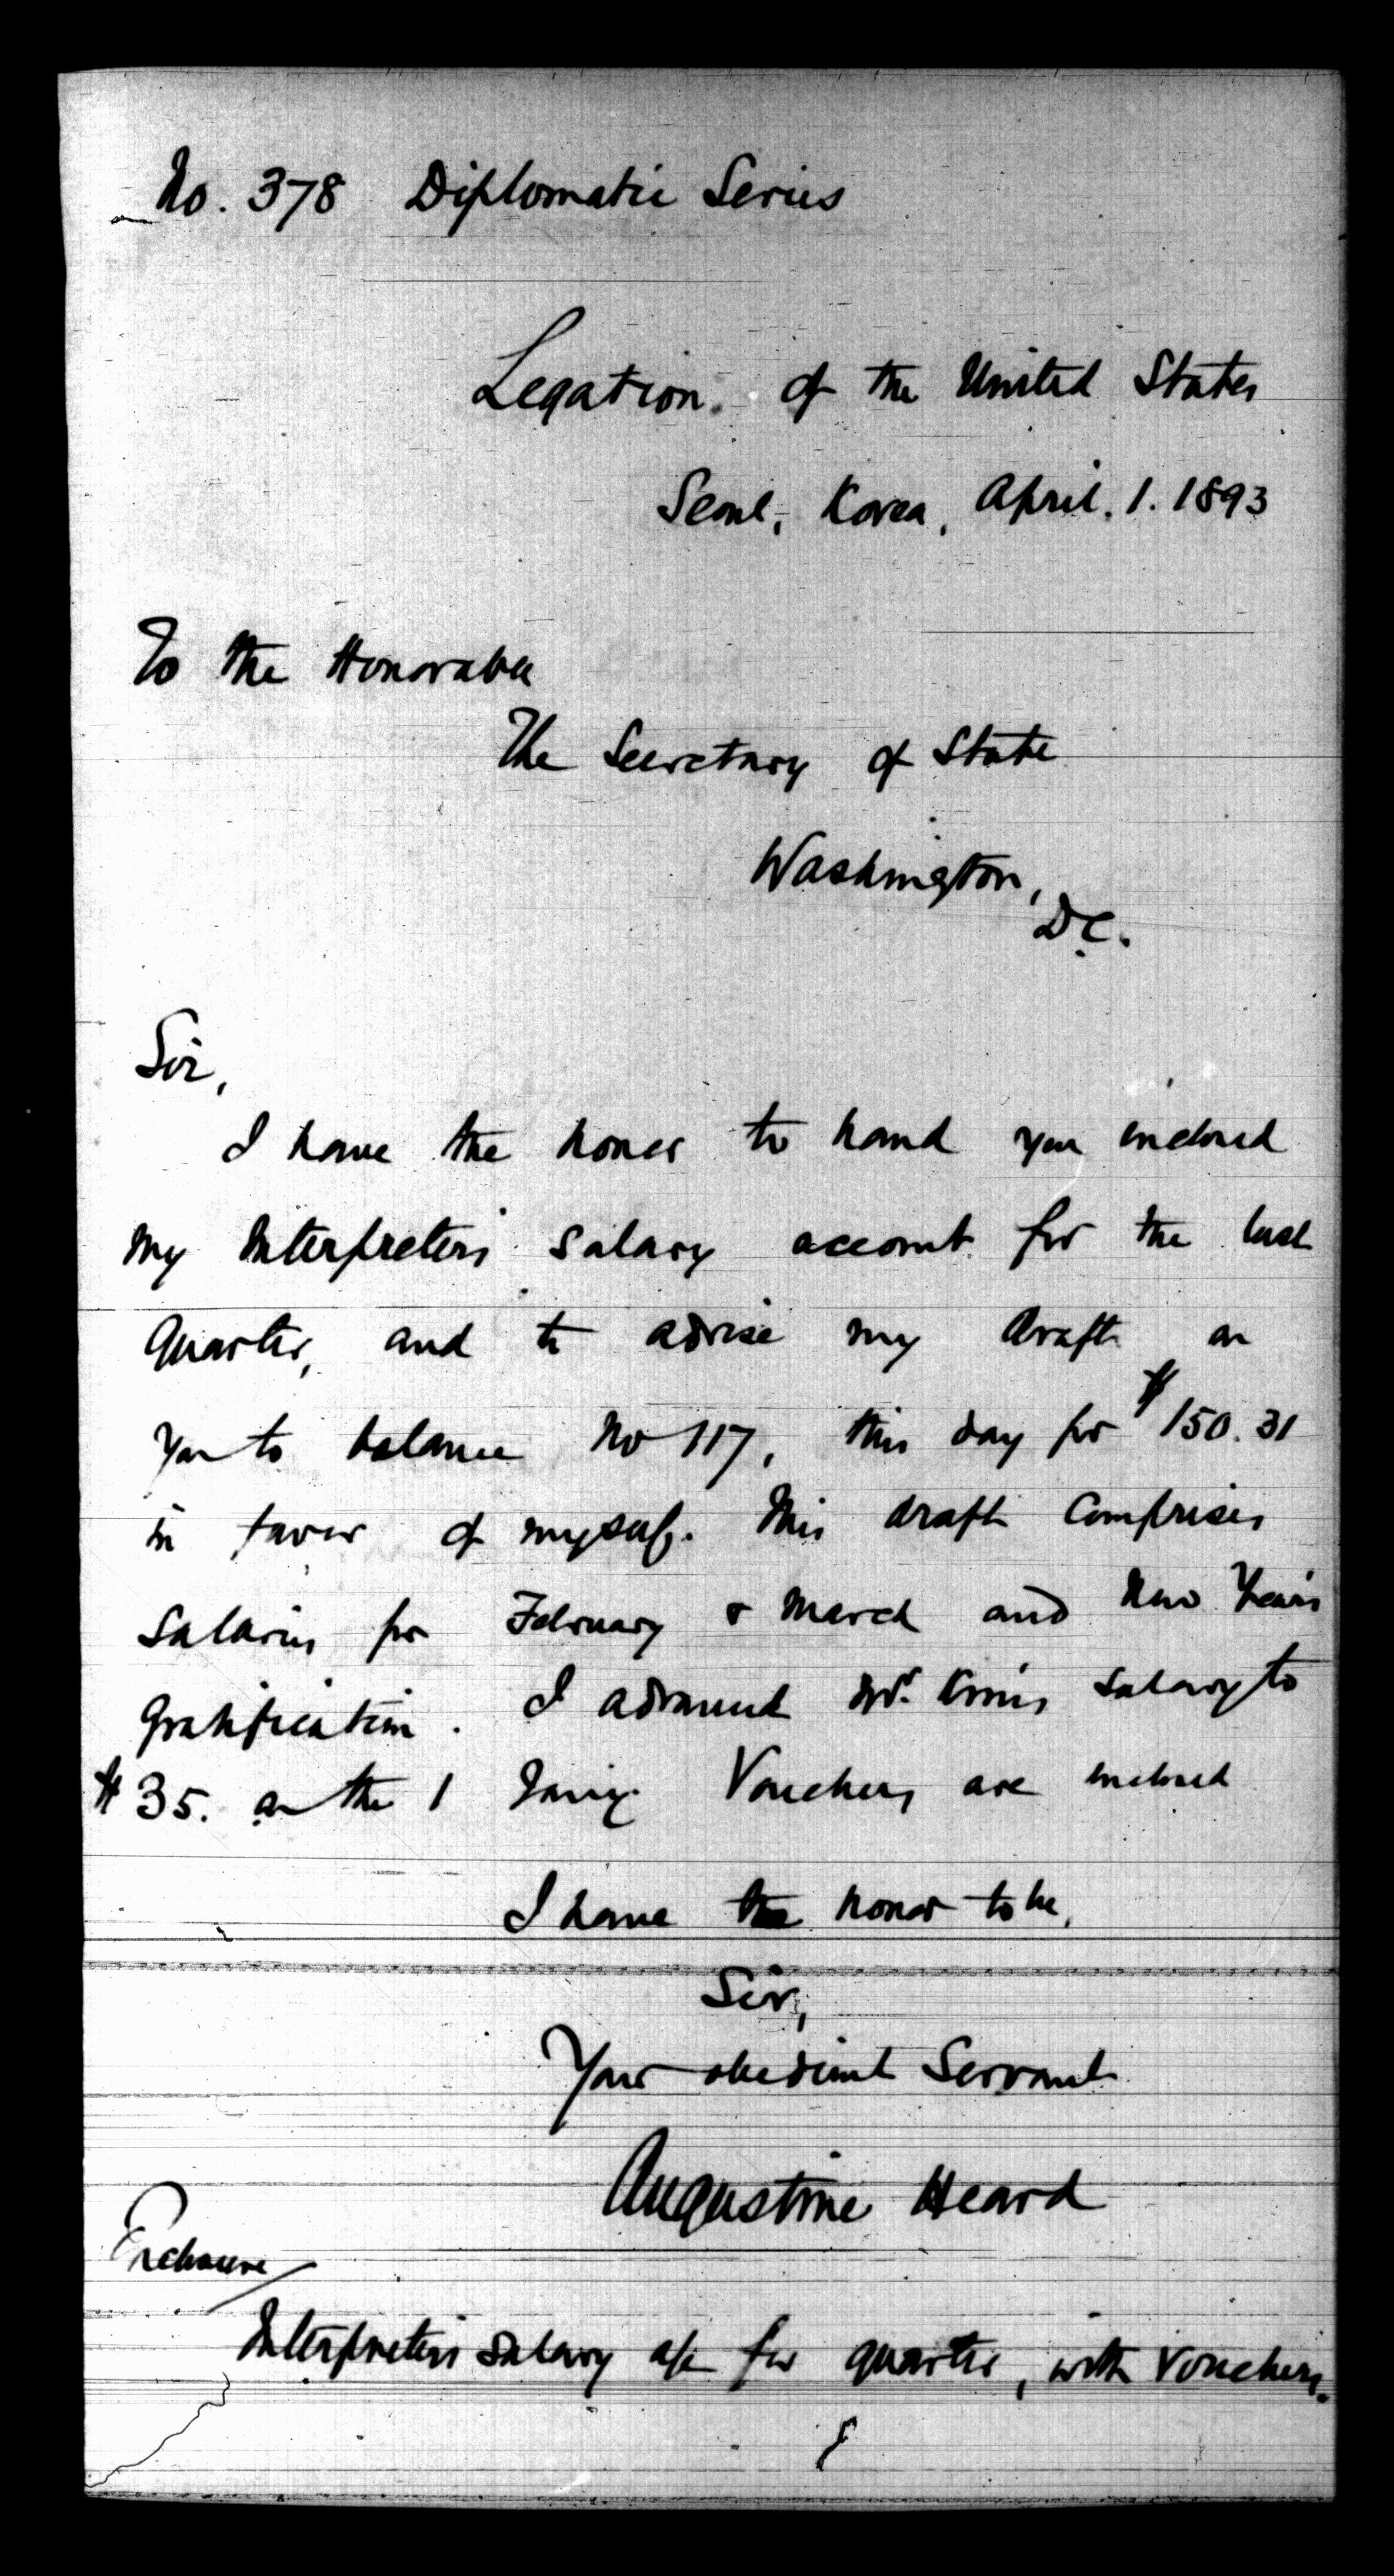 No. 378 Diplomatic Series
Legation of the United States
Seoul, Korea, April. 1. 1893
To the Honorable
The Secretary of State
Washington,
D.C.
Sir,
I have the honor to hand you enclosed
my Interpreters salary account for the last
Quarter, and to advise my draft on
you to balance No 117, this day for $150.31
in favor of myself. This draft comprises
Salaries for February & March and New Year's
Gratification. I advanced Mr. Kim's salary to
$35. on the 1 Vouchers are enclosed
I have the honor to be,
Sir,
Your obedient Servant
Augustine Heard
Enclosure
Interpreters salary a/c for quarter, with Vouchers.